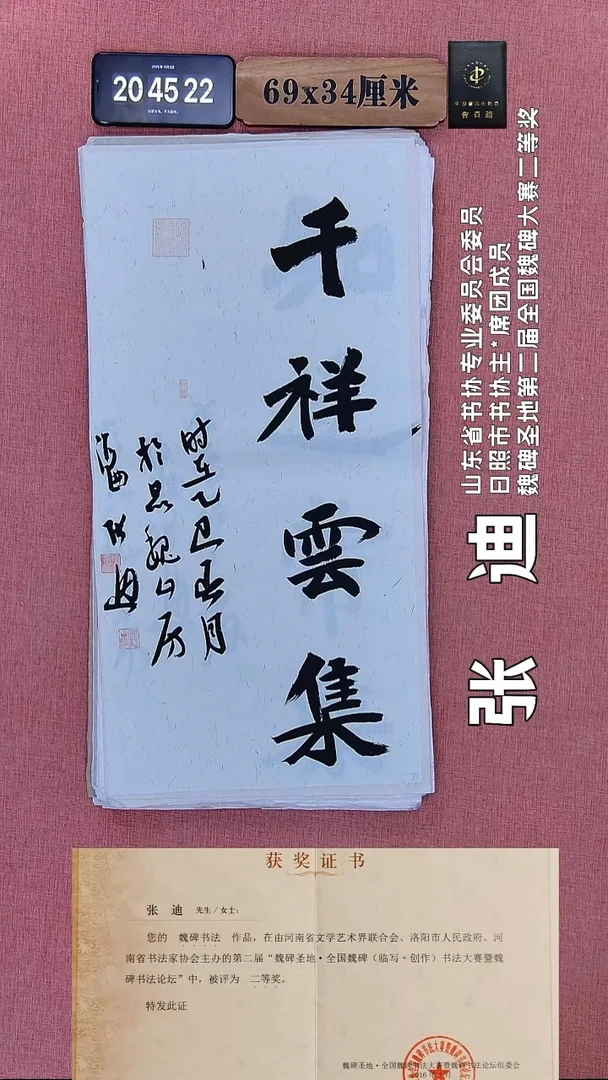 20 45 22
69x34厘米
千祥雲集
时在乙巳五月
山东省书协专业委员会委员
日照市书协主*席团成员
魏碑圣地第二届全国魏碑大赛二等奖
张 迪
获奖证书
张 迪 先生/女士：
您的 魏碑书法 作品，在由河南省文学艺术界联合会、洛阳市人民政府、河
南省书法家协会主办的第二届“魏碑圣地·全国魏碑（临写+创作）书法大赛暨魏
碑书法论坛”中，被评为 二等奖。
特发此证
魏碑圣地·全国魏碑书法大赛暨魏碑书法论坛组委会